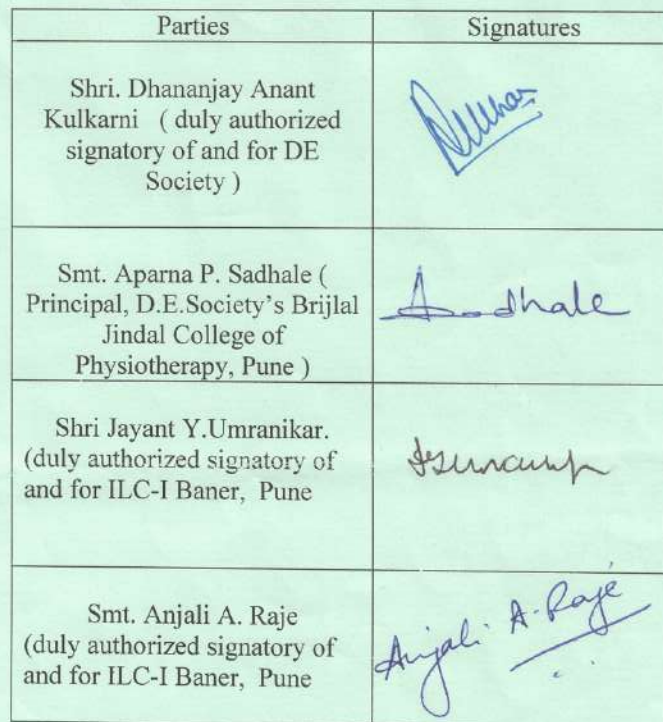 Parties
Signatures
Shri. Dhananjay Anant
Kulkarni ( duly authorized
signatory of and for DE
Society )
Smt. Aparna P. Sadhale (
Principal, D.E.Society's Brijlal
Jindal College of
Physiotherapy, Pune )
Shri Jayant Y.Umranikar.
(duly authorized signatory of
and for ILC-I Baner, Pune
Smt. Anjali A. Raje
(duly authorized signatory of
and for ILC-I Baner, Pune
Anjali A. Raje